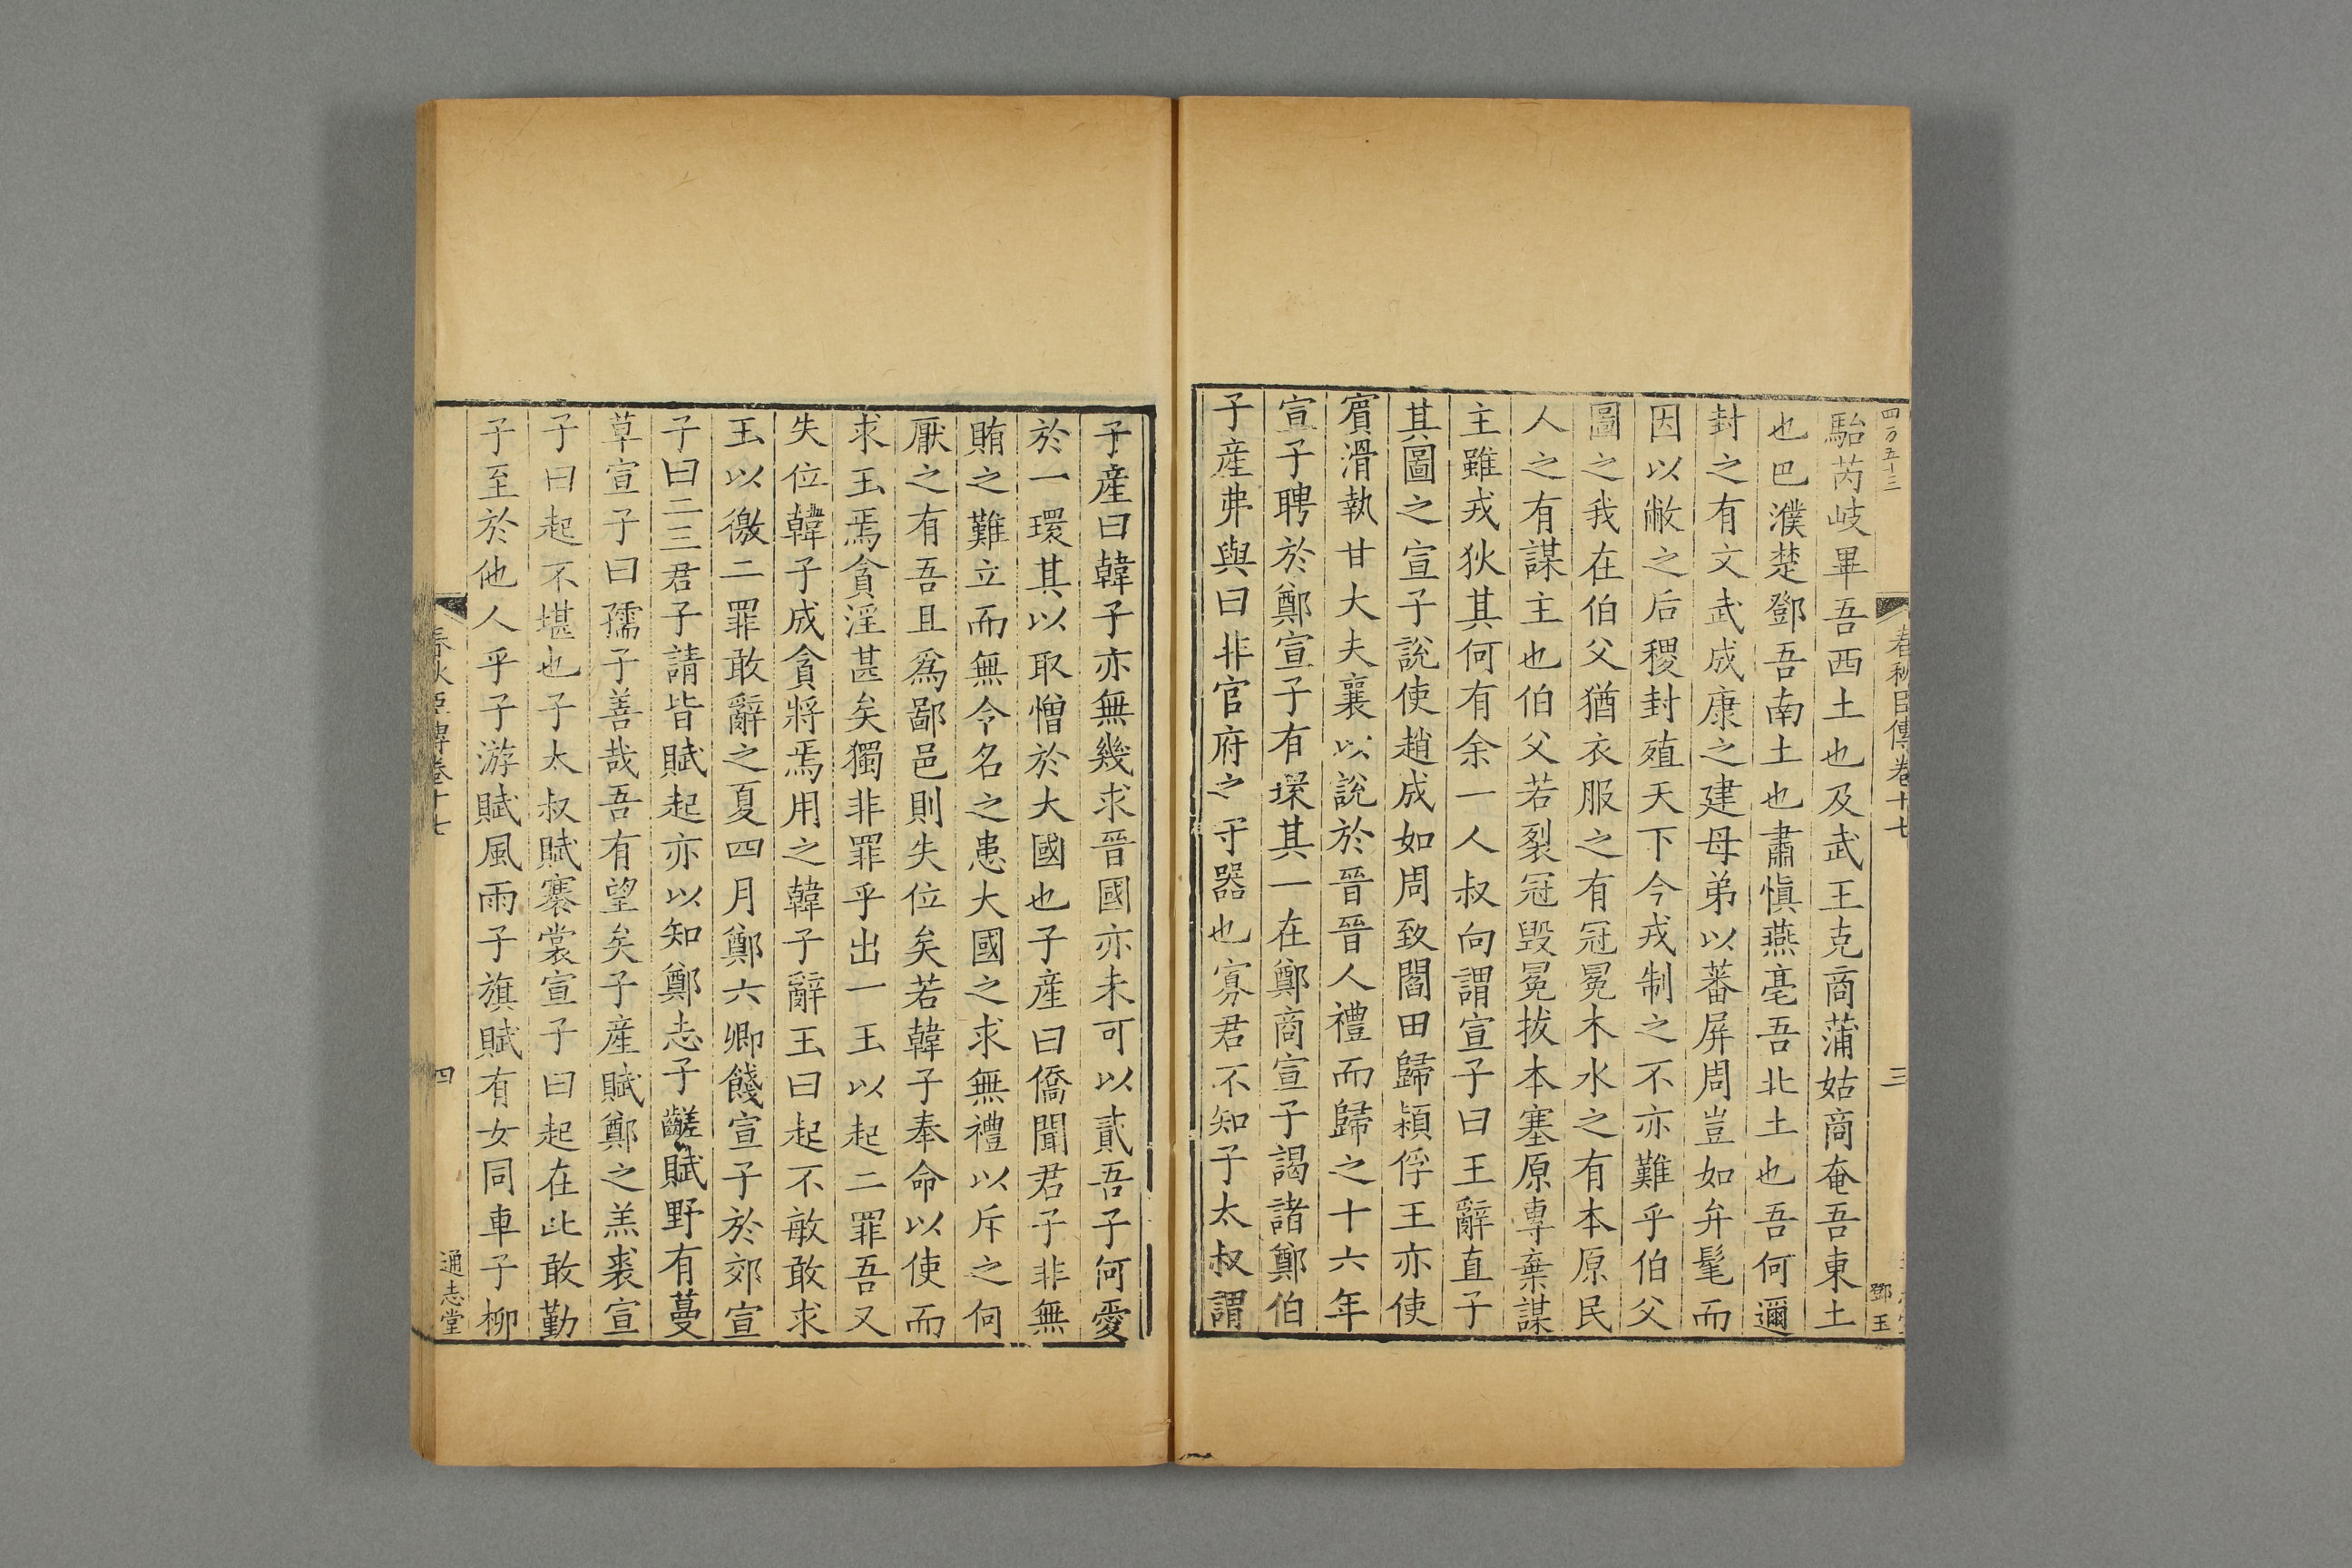 四百五十三
春秋臣傳卷十七
三
鄧玉
駘芮岐畢吾西土也及武王克商蒲姑商奄吾東土
也巴濮楚鄧吾南土也肅愼燕亳吾北土也吾何邇
封之有文武成康之建母弟以蕃屏周豈如弁髦而
因以敝之后稷封殖天下今戎制之不亦難乎伯父
圖之我在伯父猶衣服之有冠冕木水之有本原民
人之有謀主也伯父若裂冠毀冕拔本塞原專棄謀
主雖戎狄其何有余一人叔向謂宣子曰王辭直子
其圖之宣子說使趙成如周致閻田歸潁俘王亦使
賓滑執甘大夫襄以說於晉晉人禮而歸之十六年
宣子聘於鄭宣子有環其一在鄭商宣子謁諸鄭伯
子產弗與曰非官府之守器也寡君不知子太叔謂
子產曰韓子亦無幾求晉國亦未可以貳吾子何愛
於一環其以取憎於大國也子產曰僑聞君子非無
賄之難立而無令名之患大國之求無禮以斥之何
厭之有吾且爲鄙邑則失位矣若韓子奉命以使而
求玉焉貪淫甚矣獨非罪乎出一玉以起二罪吾又
失位韓子成貪將焉用之韓子辭玉曰起不敏敢求
玉以徼二罪敢辭之夏四月鄭六卿餞宣子於郊宣
子曰二三君子請皆賦起亦以知鄭志子齹賦野有蔓
草宣子曰孺子善哉吾有望矣子產賦鄭之羔裘宣
子曰起不堪也子太叔賦褰裳宣子曰起在此敢勤
子至於他人乎子游賦風雨子旗賦有女同車子柳
春秋臣傳卷十七
四
通志堂